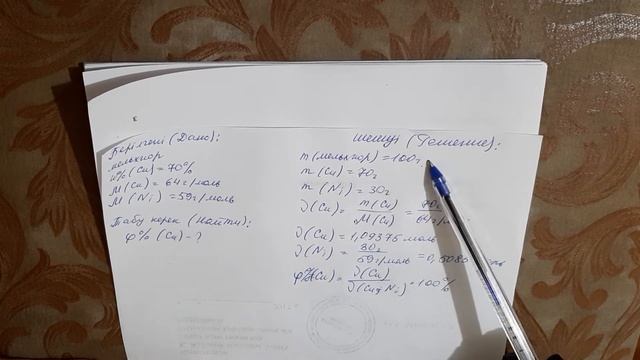 Берілгені (Дано):
мельхиор
ω%(Cu) = 70%
M(Cu) = 64г/моль
M(Ni) = 59г/моль
Табу керек (Найти):
φ%(Cu) - ?
Шешуі (Решение):
m(мельхиор) = 100г
m(Cu) = 70г
m(Ni) = 30г
ν(Cu) = m(Cu)/M(Cu) = 70г/64г/
ν(Cu) = 1,09375 моль
ν(Ni) = 30г/59г/моль = 0,508
φ%(Cu) = ν(Cu)/ν(Cu+Ni) * 100%